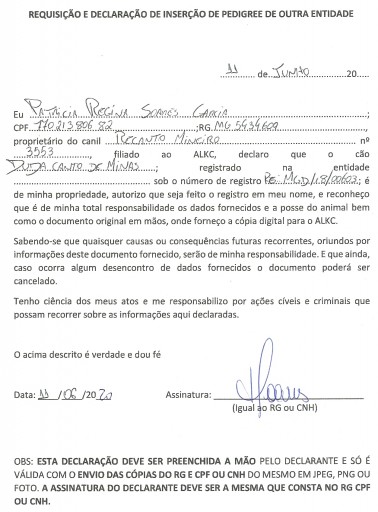 REQUISIÇÃO E DECLARAÇÃO DE INSERÇÃO DE PEDIGREE DE OUTRA ENTIDADE
11 de JUNHO 20.....
Eu PATRÍCIA REGINA SOARES GARCIA
CPF 170213806 82 ;RG MG 5434609
proprietário do canil RECANTO MINEIRO nº
3553, filiado ao ALKC, declaro que o cão
DUDA CANTO DE MINAS; registrado na entidade
sob o número de registro MGD/18/00602; é
de minha propriedade, autorizo que seja feito o registro em meu nome, e reconheço
que é de minha total responsabilidade os dados fornecidos e a posse do animal bem
como o documento original em mãos, onde forneço a cópia digital para o ALKC.
Sabendo-se que quaisquer causas ou consequências futuras recorrentes, oriundos por
informações deste documento fornecido, serão de minha responsabilidade. E que ainda,
caso ocorra algum desencontro de dados fornecidos o documento poderá ser
cancelado.
Tenho ciência dos meus atos e me responsabilizo por ações cíveis e criminais que
possam recorrer sobre as informações aqui declaradas.
O acima descrito é verdade e dou fé
Data: 11 /06 /2020 Assinatura:
(Igual ao RG ou CNH)
OBS: ESTA DECLARAÇÃO DEVE SER PREENCHIDA A MÃO PELO DECLARANTE E SÓ É
VÁLIDA COM O ENVIO DAS CÓPIAS DO RG E CPF OU CNH DO MESMO EM JPEG, PNG OU
FOTO. A ASSINATURA DO DECLARANTE DEVE SER A MESMA QUE CONSTA NO RG CPF
OU CNH.